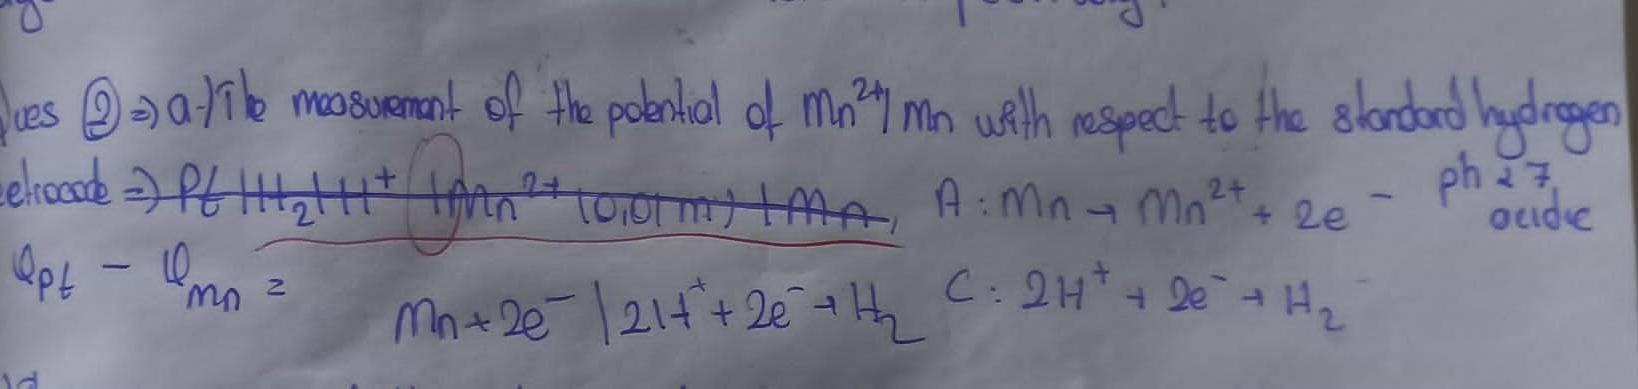 ques ② => a-/The measurement of the potential of Mn²⁺/Mn with respect to the standard hydrogen
elrocode => Pt|H₂|H⁺|Mn²⁺(0,01m)|Mn, A : Mn → Mn²⁺ + 2e⁻ ph < 7,
acidic
φpt - φmn =
Mn + 2e⁻ | 2H⁺ + 2e⁻ → H₂ C : 2H⁺ + 2e⁻ → H₂